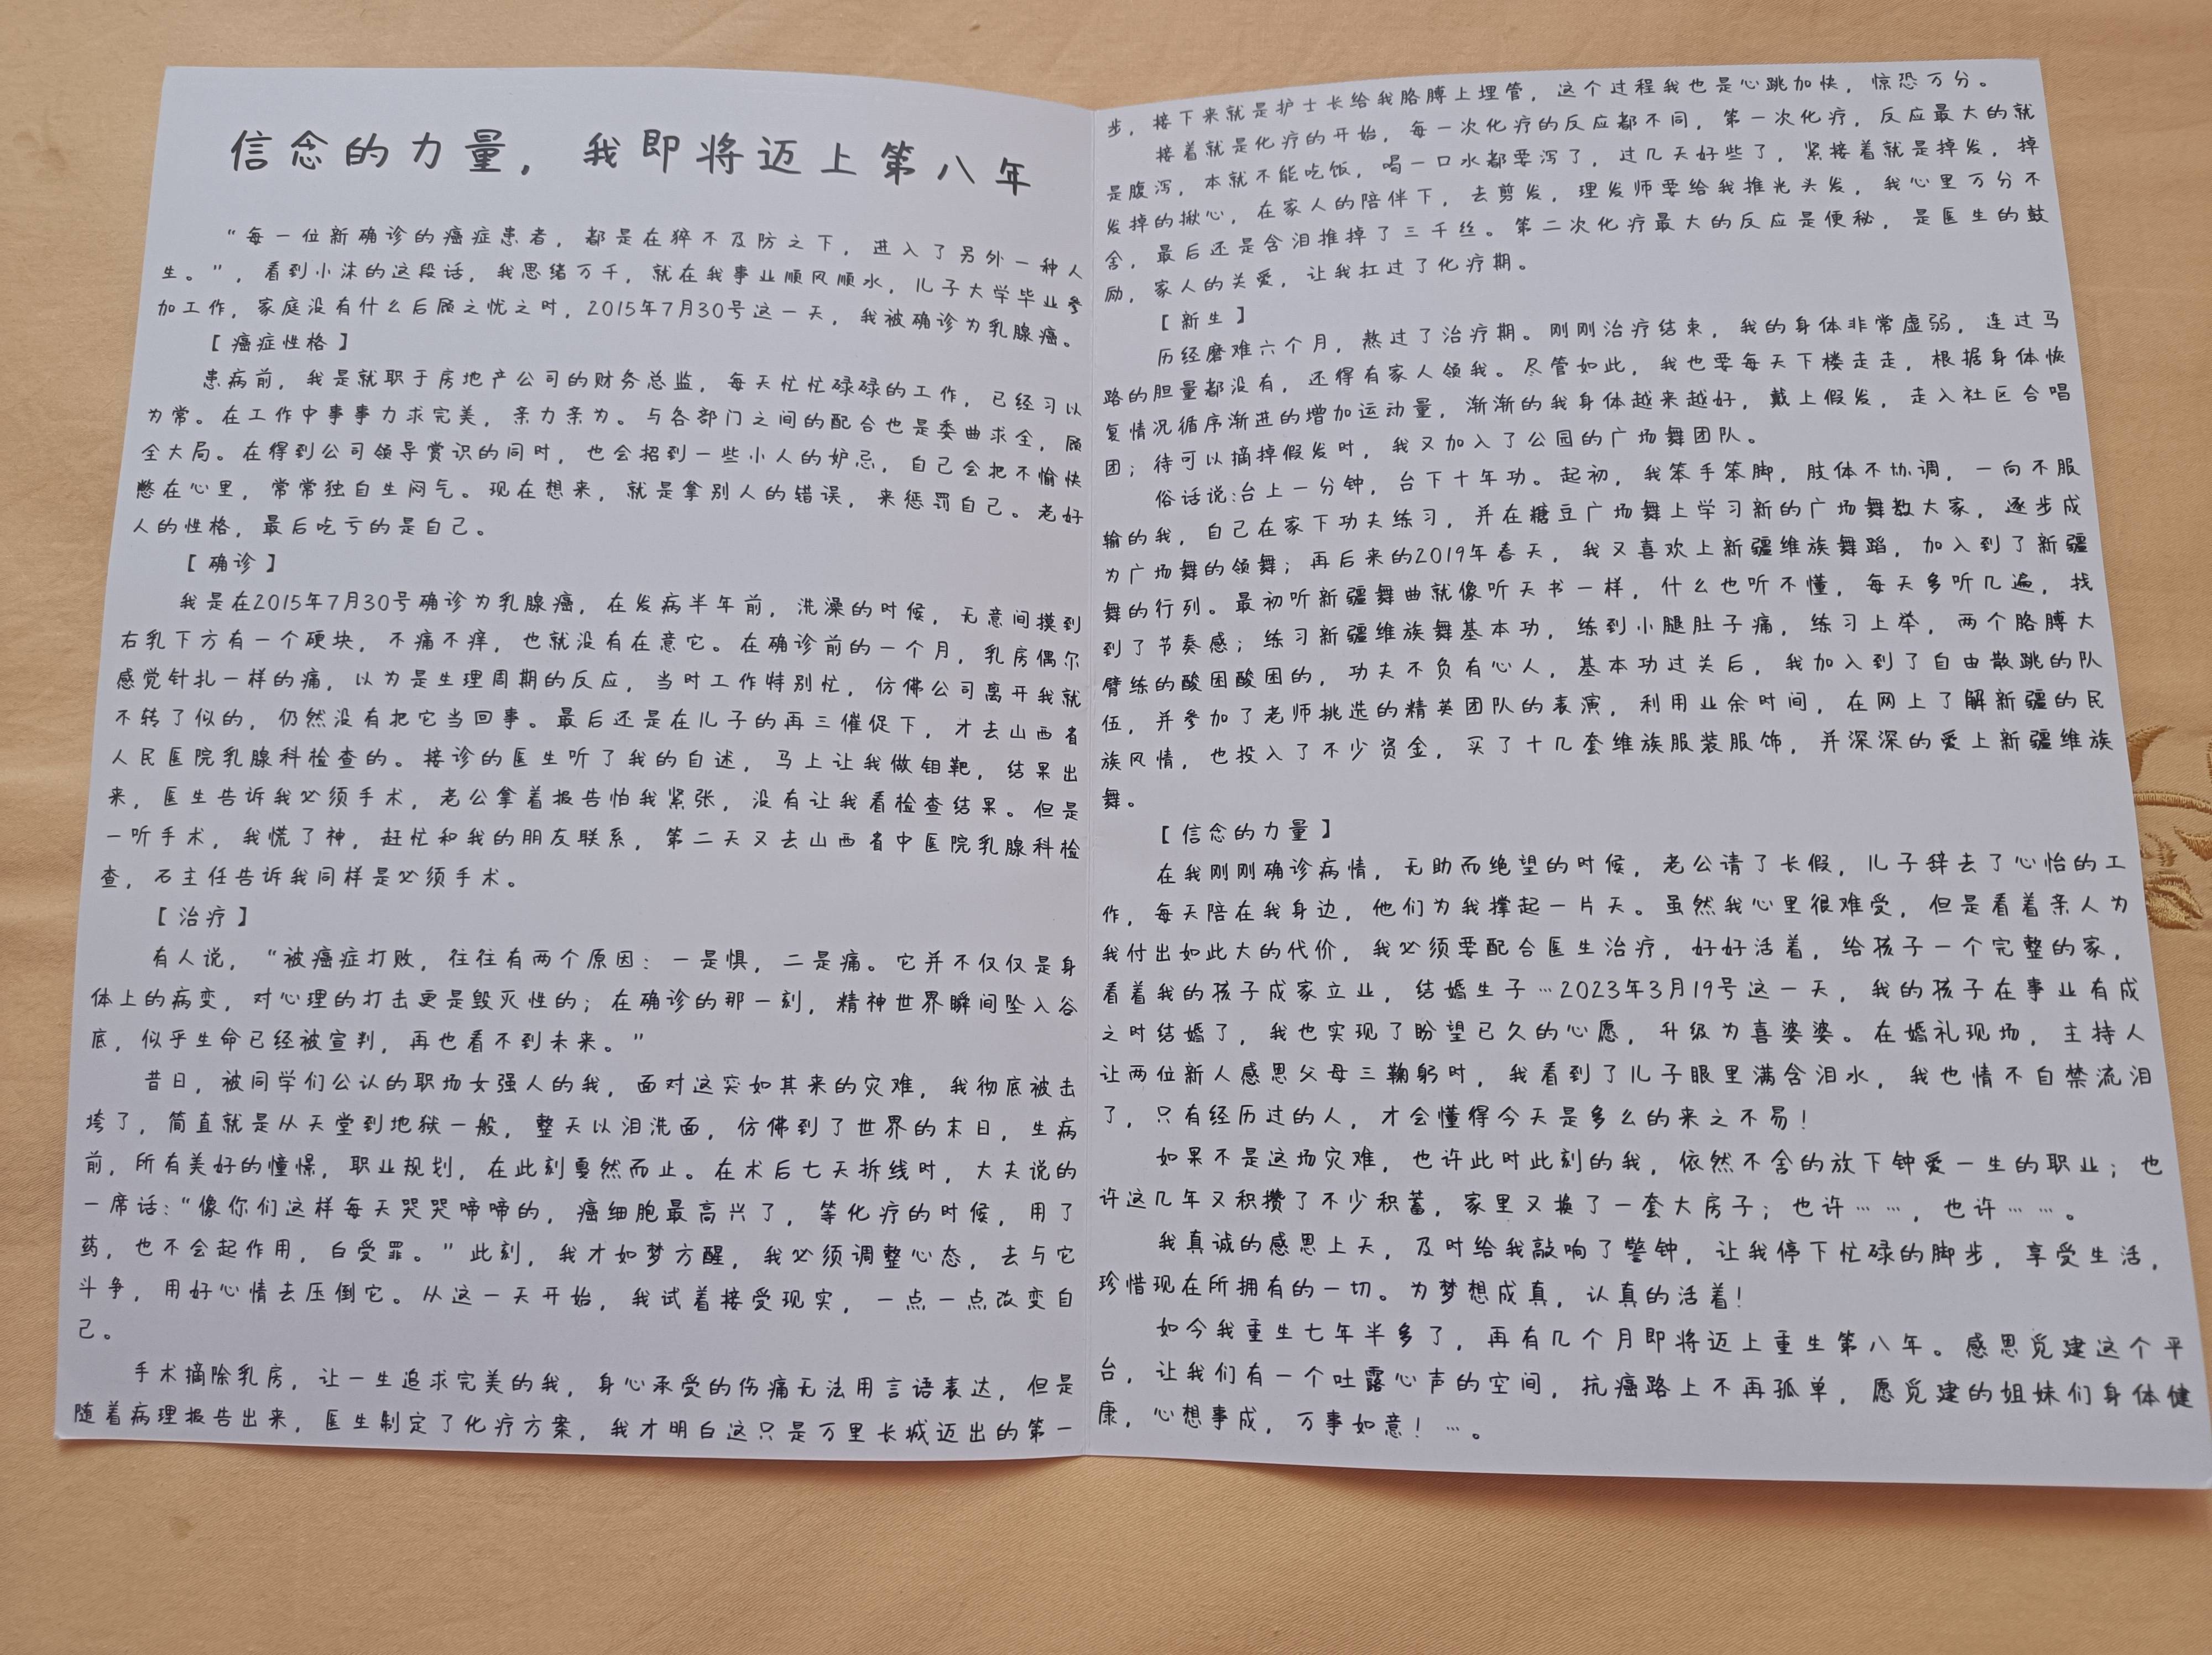 信念的力量，我即将迈上第八年
“每一位新确诊的癌症患者，都是在猝不及防之下，进入了另外一种人
生。”，看到小沫的这段话，我思绪万千，就在我事业顺风顺水，儿子大学毕业参
加工作，家庭没有什么后顾之忧之时，2015年7月30号这一天，我被确诊为乳腺癌。
【癌症性格】
患病前，我是就职于房地产公司的财务总监，每天忙忙碌碌的工作，已经习以
为常。在工作中事事力求完美，亲力亲为。与各部门之间的配合也是委曲求全，顾
全大局。在得到公司领导赏识的同时，也会招到一些小人的妒忌，自己会把不愉快
憋在心里，常常独自生闷气。现在想来，就是拿别人的错误，来惩罚自己。老好
人的性格，最后吃亏的是自己。
【确诊】
我是在2015年7月30号确诊为乳腺癌，在发病半年前，洗澡的时候，无意间摸到
右乳下方有一个硬块，不痛不痒，也就没有在意它。在确诊前的一个月，乳房偶尔
感觉针扎一样的痛，以为是生理周期的反应，当时工作特别忙，仿佛公司离开我就
不转了似的，仍然没有把它当回事。最后还是在儿子的再三催促下，才去山西省
人民医院乳腺科检查的。接诊的医生听了我的自述，马上让我做钼靶，结果出
来，医生告诉我必须手术，老公拿着报告怕我紧张，没有让我看检查结果。但是
一听手术，我慌了神，赶忙和我的朋友联系，第二天又去山西省中医院乳腺科检
查，石主任告诉我同样是必须手术。
【治疗】
有人说，“被癌症打败，往往有两个原因：一是惧，二是痛。它并不仅仅是身
体上的病变，对心理的打击更是毁灭性的；在确诊的那一刻，精神世界瞬间坠入谷
底，似乎生命已经被宣判，再也看不到未来。”
昔日，被同学们公认的职场女强人的我，面对这突如其来的灾难，我彻底被击
垮了，简直就是从天堂到地狱一般，整天以泪洗面，仿佛到了世界的末日，生病
前，所有美好的憧憬，职业规划，在此刻戛然而止。在术后七天拆线时，大夫说的
一席话：“像你们这样每天哭哭啼啼的，癌细胞最高兴了，等化疗的时候，用了
药，也不会起作用，白受罪。”此刻，我才如梦方醒，我必须调整心态，去与它
斗争，用好心情去压倒它。从这一天开始，我试着接受现实，一点一点改变自
己。
手术摘除乳房，让一生追求完美的我，身心承受的伤痛无法用言语表达，但是
随着病理报告出来，医生制定了化疗方案，我才明白这只是万里长城迈出的第一
步，接下来就是护士长给我胳膊上埋管，这个过程我也是心跳加快，惊恐万分。
接着就是化疗的开始，每一次化疗的反应都不同，第一次化疗，反应最大的就
是腹泻，本就不能吃饭，喝一口水都要泻了，过几天好些了，紧接着就是掉发，掉
发掉的揪心，在家人的陪伴下，去剪发，理发师要给我推光头发，我心里万分不
舍，最后还是含泪推掉了三千丝。第二次化疗最大的反应是便秘，是医生的鼓
励，家人的关爱，让我扛过了化疗期。
【新生】
历经磨难六个月，熬过了治疗期。刚刚治疗结束，我的身体非常虚弱，连过马
路的胆量都没有，还得有家人领我。尽管如此，我也要每天下楼走走，根据身体恢
复情况循序渐进的增加运动量，渐渐的我身体越来越好，戴上假发，走入社区合唱
团；待可以摘掉假发时，我又加入了公园的广场舞团队。
俗话说:台上一分钟，台下十年功。起初，我笨手笨脚，肢体不协调，一向不服
输的我，自己在家下功夫练习，并在糖豆广场舞上学习新的广场舞教大家，逐步成
为广场舞的领舞；再后来的2019年春天，我又喜欢上新疆维族舞蹈，加入到了新疆
舞的行列。最初听新疆舞曲就像听天书一样，什么也听不懂，每天多听几遍，找
到了节奏感；练习新疆维族舞基本功，练到小腿肚子痛，练习上举，两个胳膊大
臂练的酸困酸困的，功夫不负有心人，基本功过关后，我加入到了自由散跳的队
伍，并参加了老师挑选的精英团队的表演，利用业余时间，在网上了解新疆的民
族风情，也投入了不少资金，买了十几套维族服装服饰，并深深的爱上新疆维族
舞。
【信念的力量】
在我刚刚确诊病情，无助而绝望的时候，老公请了长假，儿子辞去了心怡的工
作，每天陪在我身边，他们为我撑起一片天。虽然我心里很难受，但是看着亲人为
我付出如此大的代价，我必须要配合医生治疗，好好活着，给孩子一个完整的家，
看着我的孩子成家立业，结婚生子…2023年3月19号这一天，我的孩子在事业有成
之时结婚了，我也实现了盼望已久的心愿，升级为喜婆婆。在婚礼现场，主持人
让两位新人感恩父母三鞠躬时，我看到了儿子眼里满含泪水，我也情不自禁流泪
了，只有经历过的人，才会懂得今天是多么的来之不易！
如果不是这场灾难，也许此时此刻的我，依然不舍的放下钟爱一生的职业；也
许这几年又积攒了不少积蓄，家里又换了一套大房子；也许……，也许……。
我真诚的感恩上天，及时给我敲响了警钟，让我停下忙碌的脚步，享受生活，
珍惜现在所拥有的一切。为梦想成真，认真的活着！
如今我重生七年半多了，再有几个月即将迈上重生第八年。感恩觅建这个平
台，让我们有一个吐露心声的空间，抗癌路上不再孤单，愿觅建的姐妹们身体健
康，心想事成，万事如意！…。